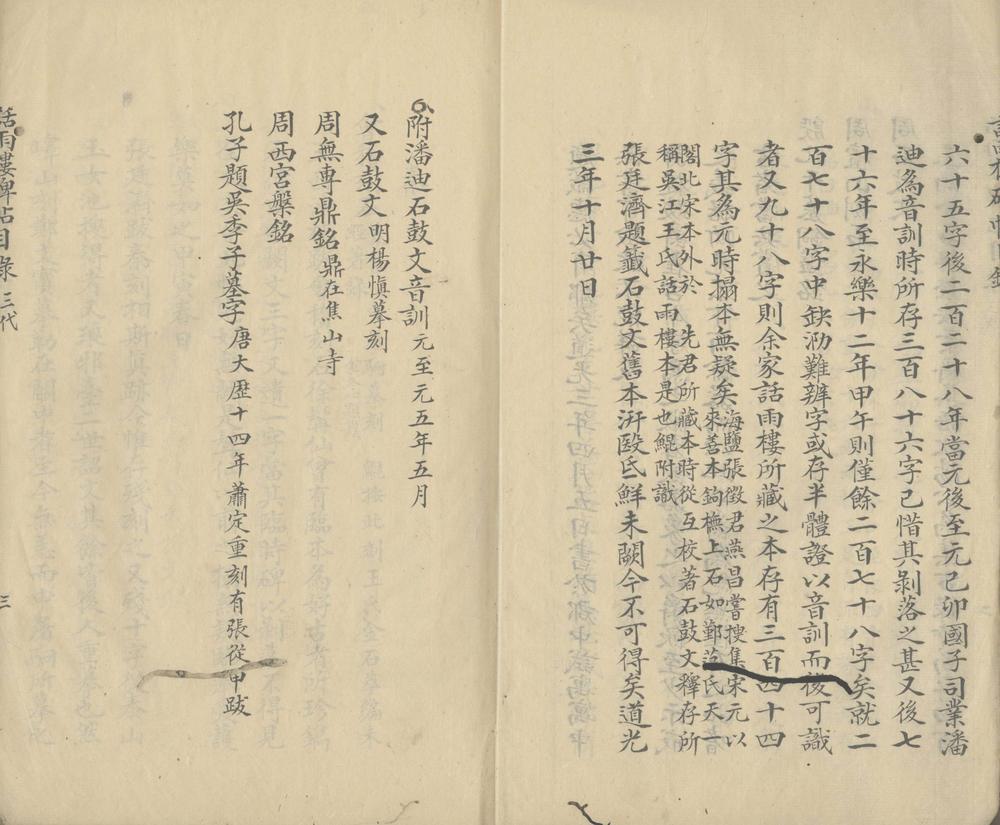 六十五字後二百二十八年當元後至元己卯國子司業潘
迪為音訓時所存三百八十六字已惜其剝落之甚又後七
十六年至永樂十二年甲午則僅餘二百七十八字矣就二
百七十八字中缺泐難辨字或存半體證以音訓而後可識
者又九十八字則余家話雨樓所藏之本存有三百四十四
字其為元時搨本無疑矣海鹽張徵君燕昌嘗搜集宋元以
來善本鉤橅上石如鄞范氏天一
閣北宋本外於 先君所藏本時從互校著石鼓文釋存所
稱吳江王氏話雨樓本是也鯤附識
張廷濟題籤石鼓文舊本汧殹氐鮮未闕今不可得矣道光
三年十月廿日
附潘迪石鼓文音訓元至元五年五月
又石鼓文明楊慎摹刻
周無專鼎銘鼎在焦山寺
周西宮槃銘
孔子題吳季子墓字唐大歷十四年蕭定重刻有張從申跋
話雨樓碑帖目錄 三代
三